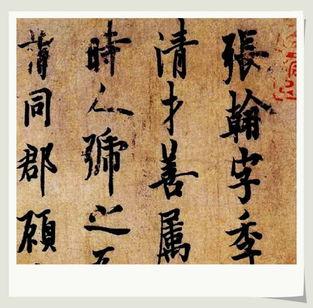 張翰字季
清才善属
時人號之
同郡顧